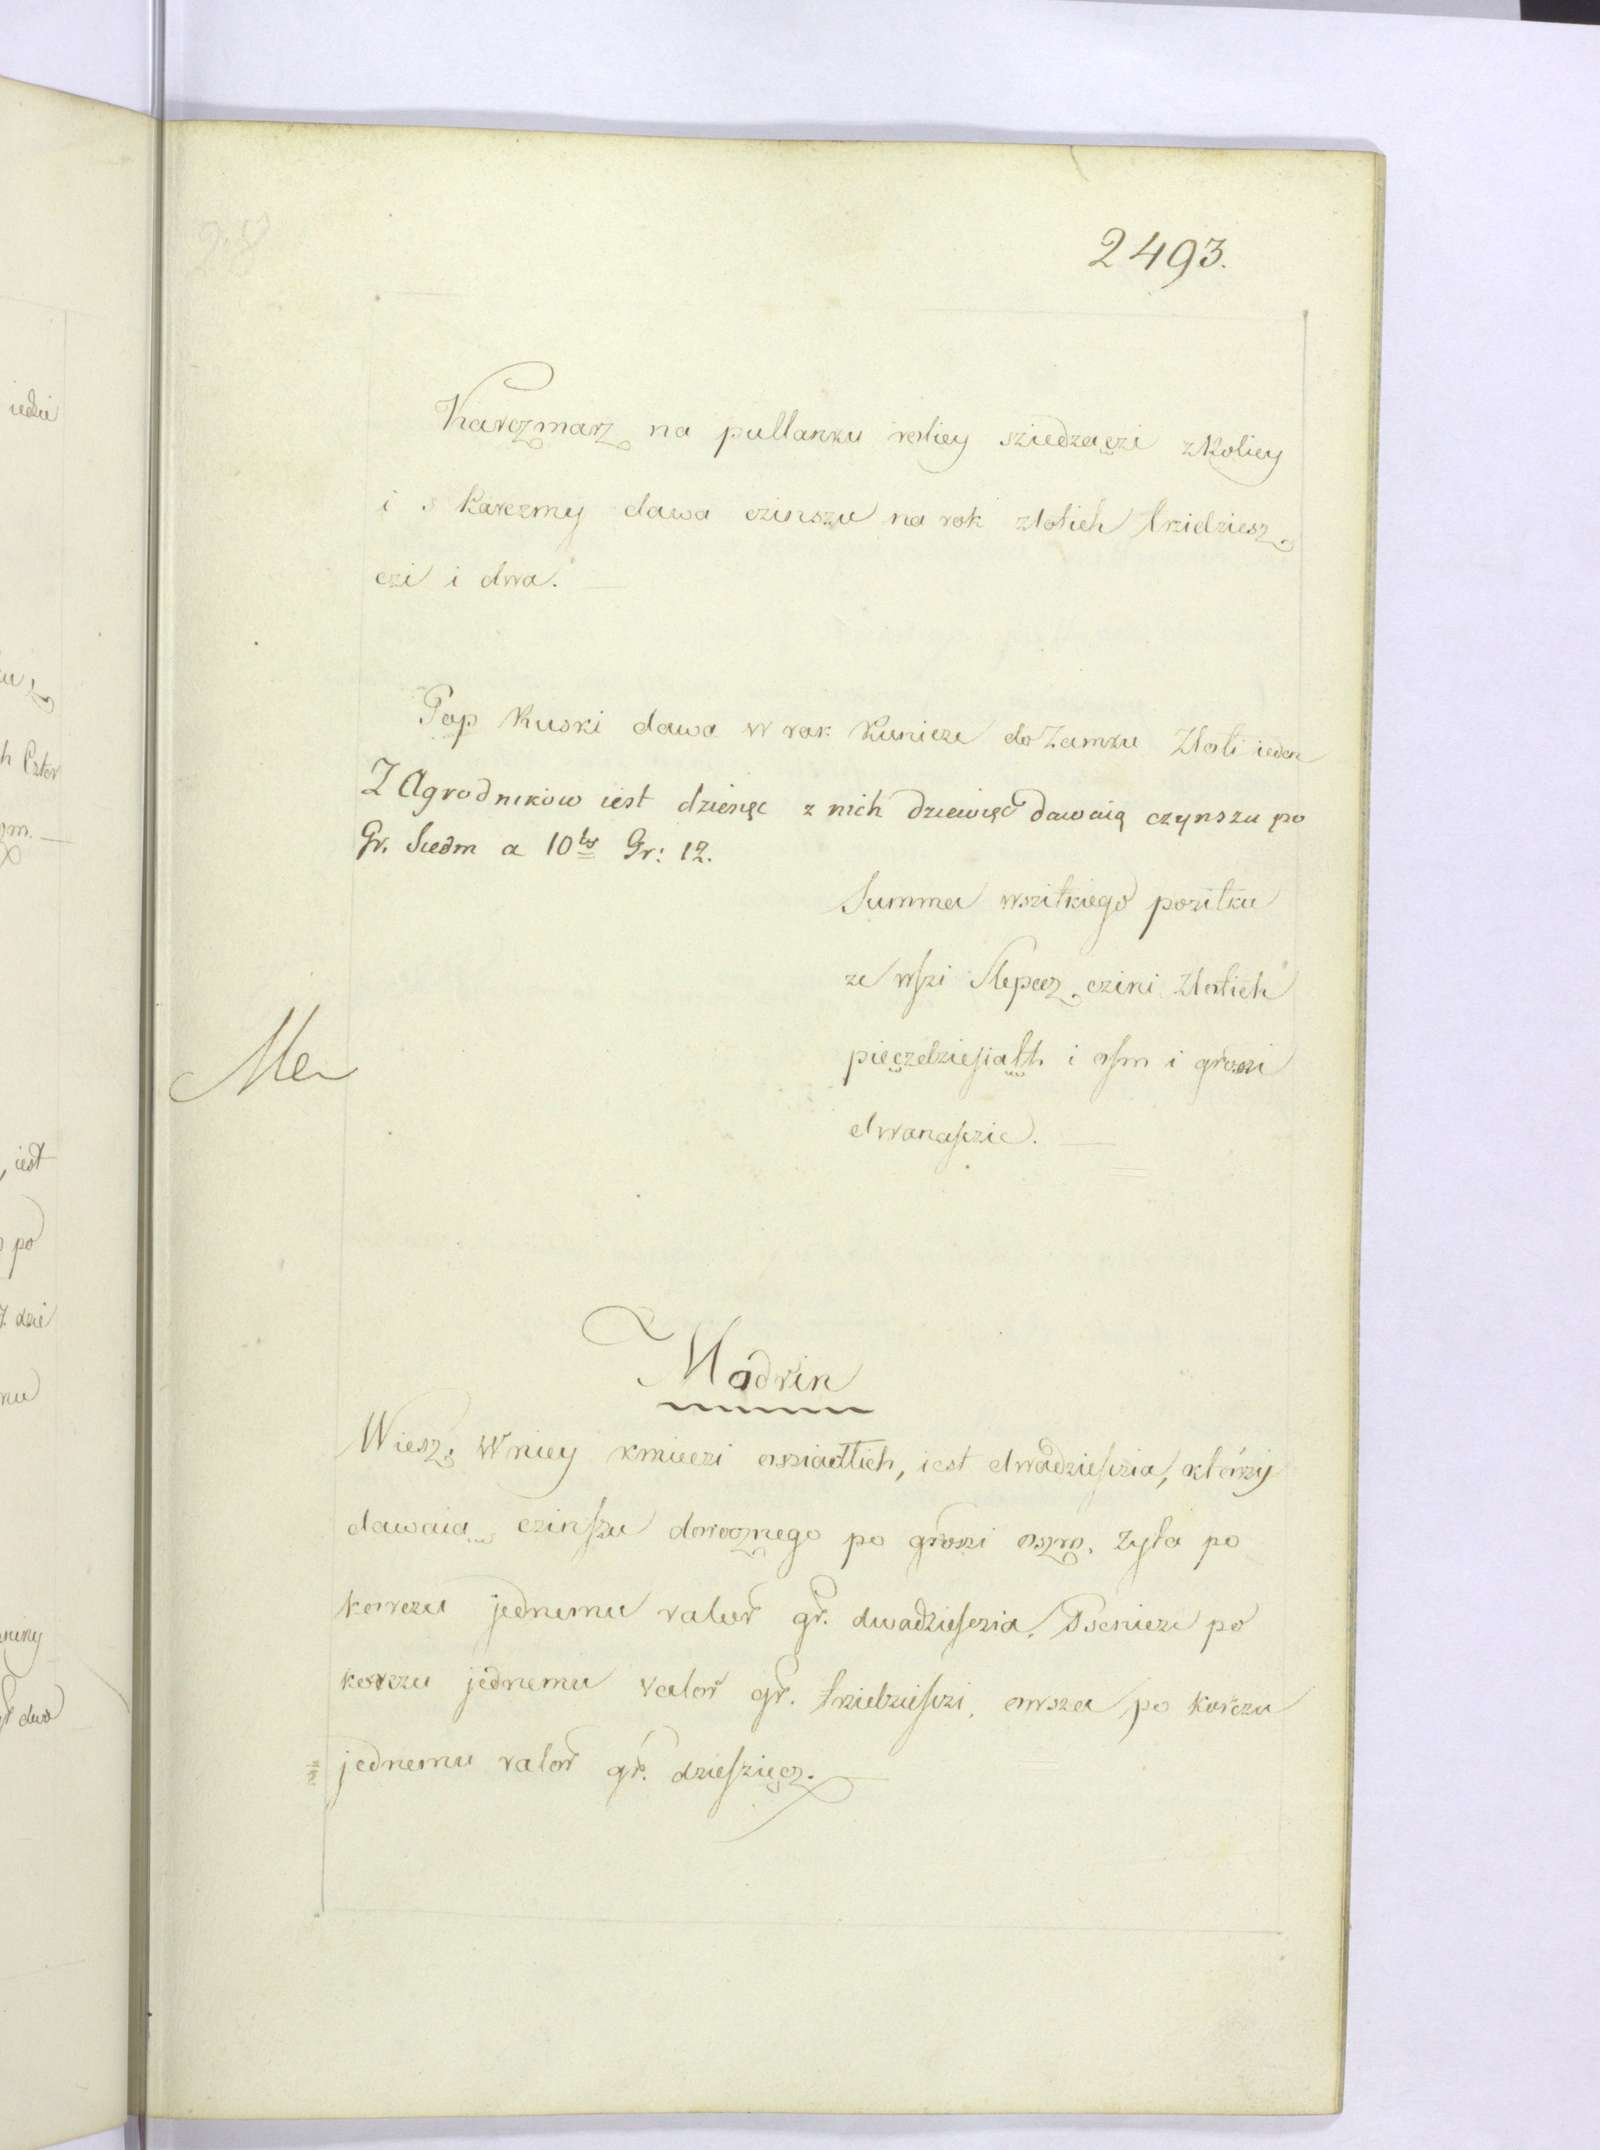 2493.
Karczmarz na pullanku roliey sziedzączi z Roliey
i s Karczmy dawa czinszu na rok złotich trzidziesz,
czi i dwa.
Pop Ruski dawa w rok Kunicze do Zamku Złoti ieden
ZAgrodników iest dziesięc z nich dziewięć dawaią czynszu po
Gr. Siedm a 10ty Gr: 12.
Summa wszitkiego pozitku
ze wszi Slepcz czini Złotich
pięczdziesiątt i osm i groszi
dwanasczie.
Me
Modrin
Wiesz. W niey kmieczi osziadłich, iest dwadziesczia, którzy
dawaią czinszu dorocznego po groszi oszm. Zyta po
korczu jednemu valor gr. dwadziesczia. Psenicze po
korczu jednemu valor gr. trzidziesczi, owsza po korczu
jednemu valor gr. dzieszięcz.